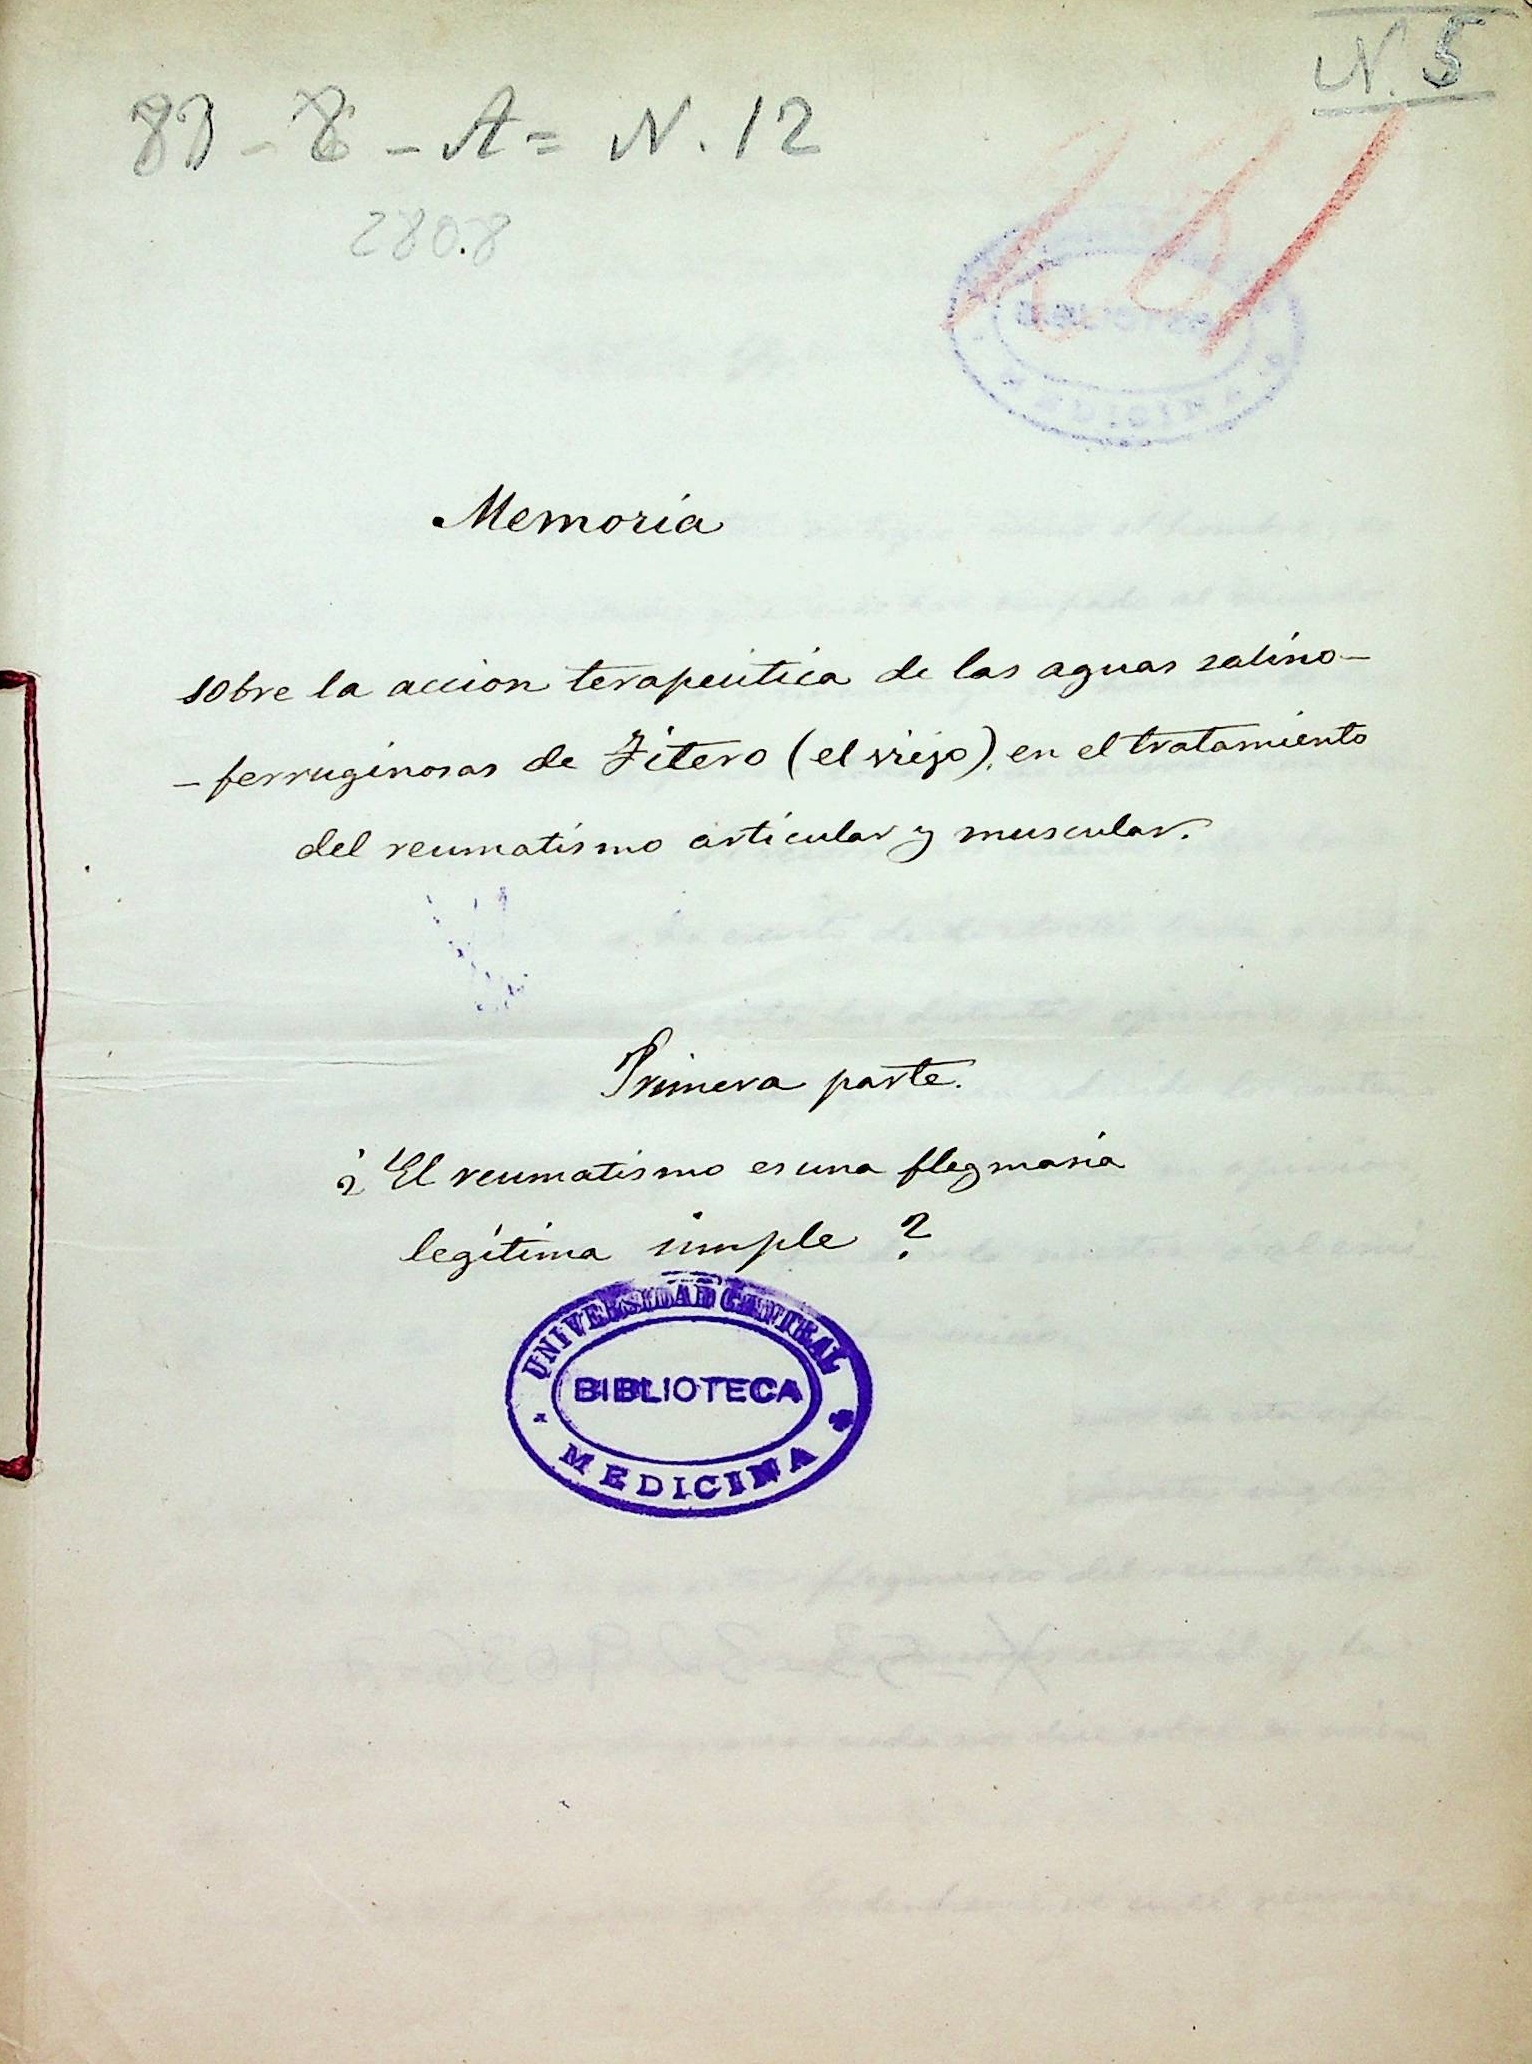 N. 5
81 - 8 - A = N. 12
280.8
101
BIBLIOTECA
MEDICINA
Memoria
sobre la accion terapeutica de las aguas salino-
-ferruginosas de Fitero (el viejo), en el tratamiento
del reumatismo articular y muscular.
Primera parte.
¿El reumatismo es una flegmasia
legítima simple?
UNIVERSIDAD CENTRAL
BIBLIOTECA
MEDICINA